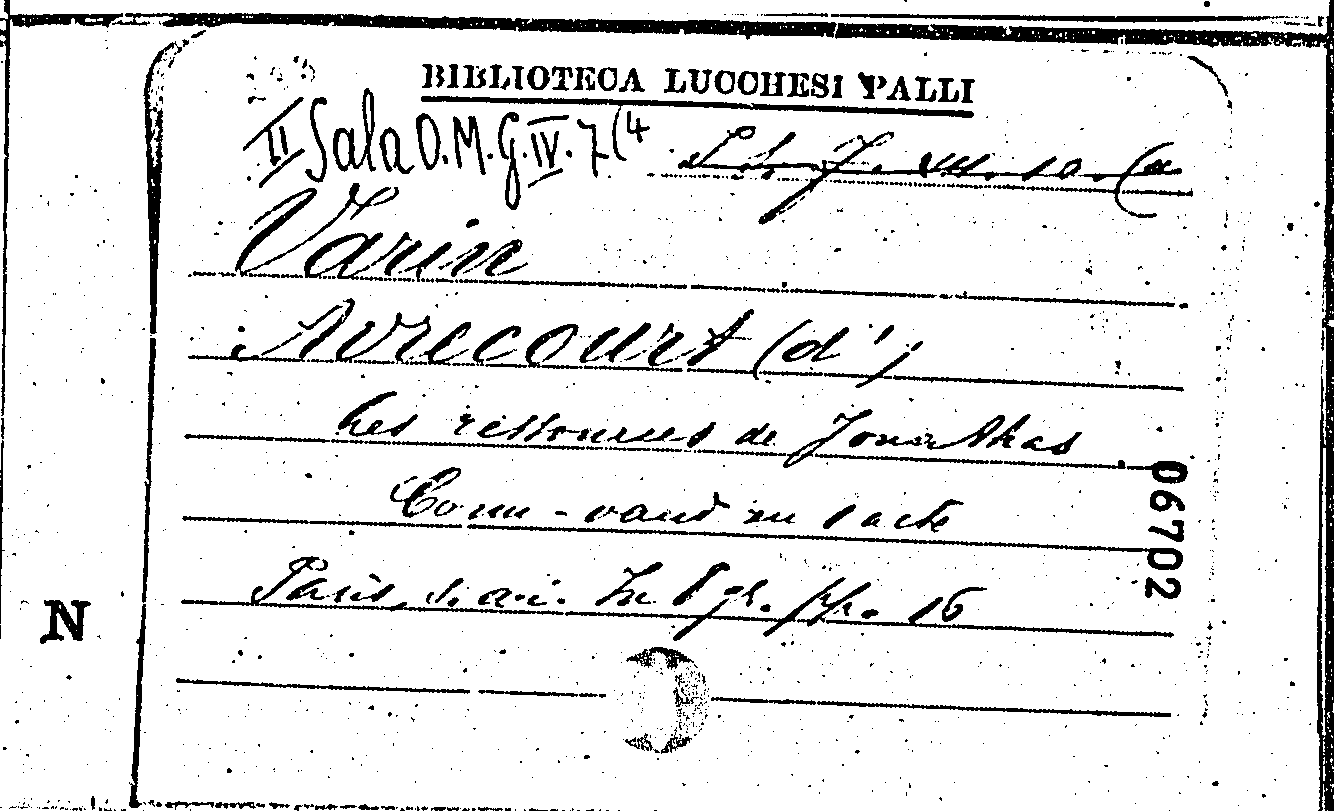 BIBLIOTECA LUCCHESI PALLI
II Sala O.M.G.IV.7(4
Varin
Avrecourt (d')
Les ressources de Jonathas
Com-vaud en 1 acte
Paris, s.a.i. In 8 gr. pp. 16
06702
N